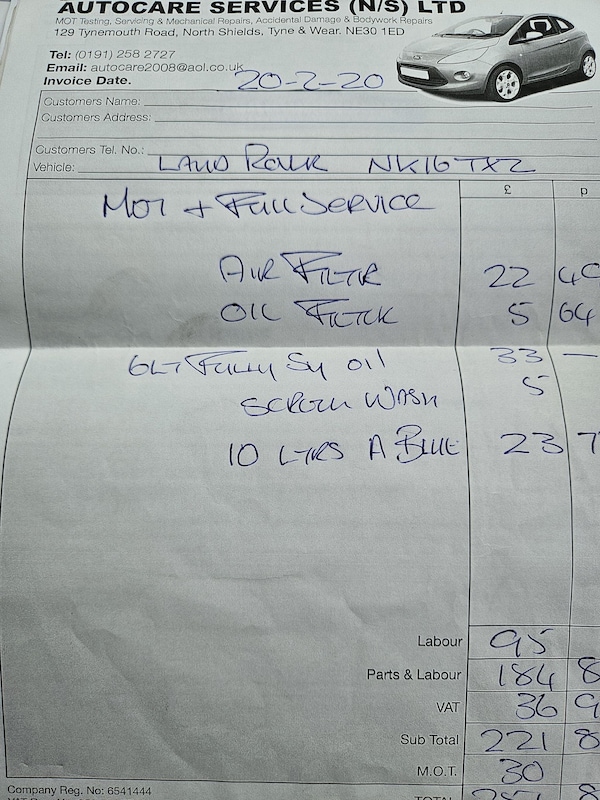 AUTOCARE SERVICES (N/S) LTD
MOT Testing, Servicing & Mechanical Repairs, Accidental Damage & Bodywork Repairs
129 Tynemouth Road, North Shields, Tyne & Wear. NE30 1ED
Tel: (0191) 258 2727
Email: autocare2008@aol.co.uk
Invoice Date. 20-2-20
Customers Name:
Customers Address:
Customers Tel. No.:
Vehicle: LAND ROVER NK16TXZ
£ p
MOT + FULL SERVICE
AIR FILTER 22 40
OIL FILTER 5 64
6LT FULLY SY OIL 33 —
SCREEN WASH 5
10 LTRS A BLUE 23 7
Labour 95
Parts & Labour 184 8
VAT 36 9
Sub Total 221 8
M.O.T. 30
Company Reg. No: 6541444
TOTAL 251 8